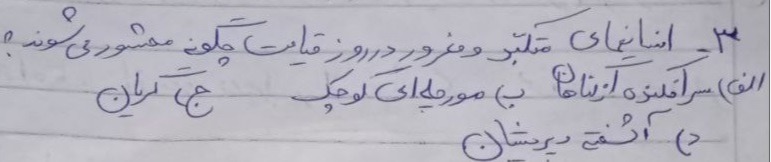 ۳- انسانهای متکبّر و مغرور در روز قیامت چگونه محشور می شوند؟
الف) سرافکنده از گناهان ب) مورچه ای کوچک ج) گریان
د) آشفته و پریشان